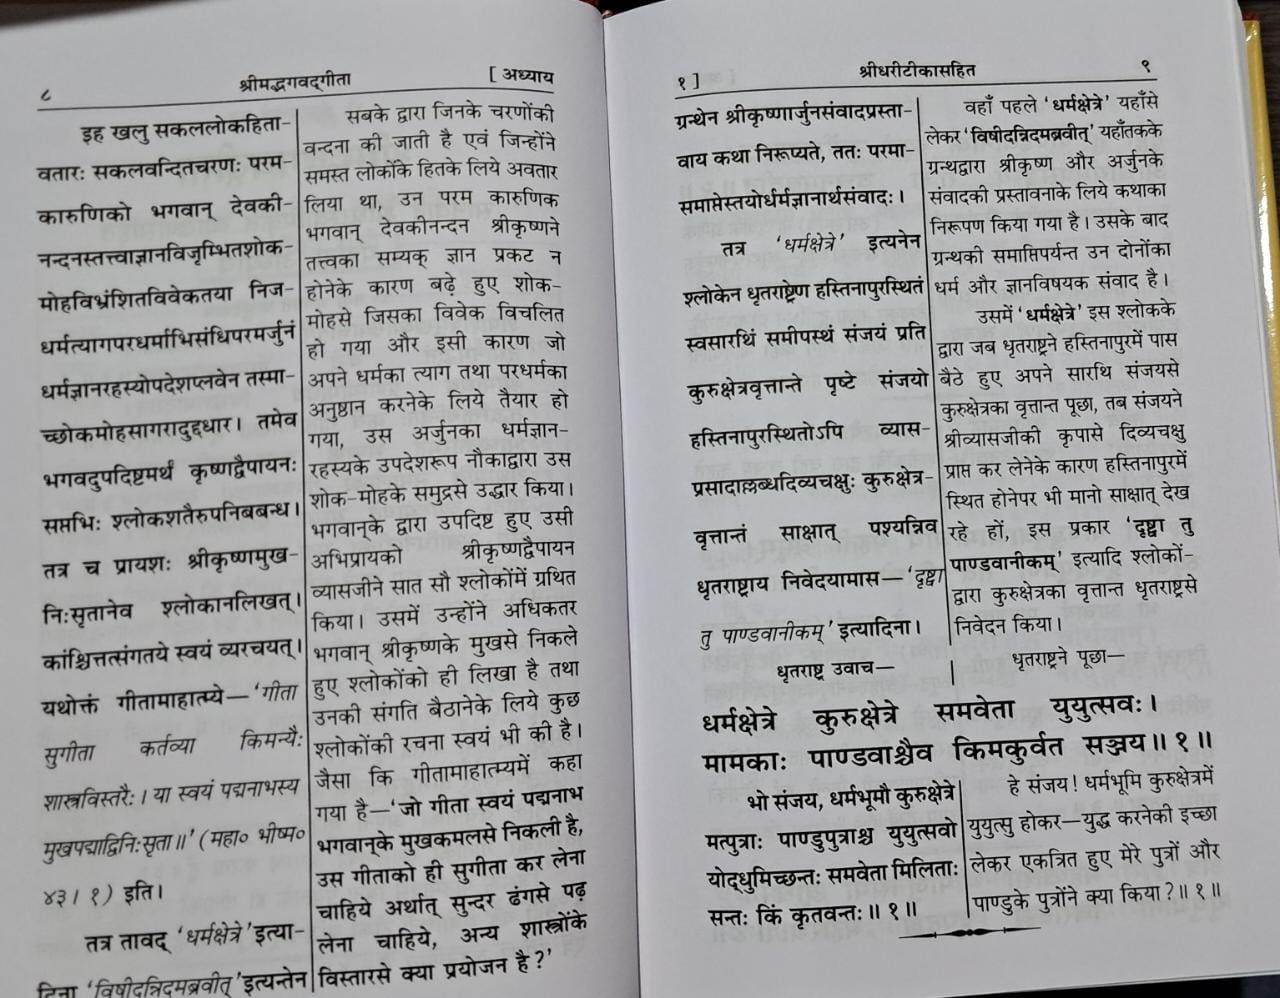 ८
श्रीमद्भगवद्‌गीता
[ अध्याय
इह खलु सकललोकहिता-
वतारः सकलवन्दितचरणः परम-
कारुणिको भगवान् देवकी-
नन्दनस्तत्त्वाज्ञानविजृम्भितशोक-
मोहविभ्रंशितविवेकतया निज-
धर्मत्यागपरधर्माभिसंधिपरमर्जुनं
धर्मज्ञानरहस्योपदेशप्लवेन तस्मा-
च्छोकमोहसागरादुद्दधार। तमेव
भगवदुपदिष्टमर्थं कृष्णद्वैपायनः
सप्तभिः श्लोकशतैरुपनिबबन्ध।
तत्र च प्रायशः श्रीकृष्णमुख-
निःसृतानेव श्लोकानलिखत्।
कांश्चित्तत्संगतये स्वयं व्यरचयत्।
यथोक्तं गीतामाहात्म्ये—'गीता
सुगीता कर्तव्या किमन्यैः
शास्त्रविस्तरैः। या स्वयं पद्मनाभस्य
मुखपद्माद्विनिःसृता॥' (महा० भीष्म०
४३। १) इति।
तत्र तावद् 'धर्मक्षेत्रे' इत्या-
दिना 'विषीदन्निदमब्रवीत्' इत्यन्तेन
सबके द्वारा जिनके चरणोंकी
वन्दना की जाती है एवं जिन्होंने
समस्त लोकोंके हितके लिये अवतार
लिया था, उन परम कारुणिक
भगवान् देवकीनन्दन श्रीकृष्णने
तत्त्वका सम्यक् ज्ञान प्रकट न
होनेके कारण बढ़े हुए शोक-
मोहसे जिसका विवेक विचलित
हो गया और इसी कारण जो
अपने धर्मका त्याग तथा परधर्मका
अनुष्ठान करनेके लिये तैयार हो
गया, उस अर्जुनका धर्मज्ञान-
रहस्यके उपदेशरूप नौकाद्वारा उस
शोक-मोहके समुद्रसे उद्धार किया।
भगवान्‌के द्वारा उपदिष्ट हुए उसी
अभिप्रायको श्रीकृष्णद्वैपायन
व्यासजीने सात सौ श्लोकोंमें ग्रथित
किया। उसमें उन्होंने अधिकतर
भगवान् श्रीकृष्णके मुखसे निकले
हुए श्लोकोंको ही लिखा है तथा
उनकी संगति बैठानेके लिये कुछ
श्लोकोंकी रचना स्वयं भी की है।
जैसा कि गीतामाहात्म्यमें कहा
गया है—'जो गीता स्वयं पद्मनाभ
भगवान्‌के मुखकमलसे निकली है,
उस गीताको ही सुगीता कर लेना
चाहिये अर्थात् सुन्दर ढंगसे पढ़
लेना चाहिये, अन्य शास्त्रोंके
विस्तारसे क्या प्रयोजन है?'
१ ]
श्रीधरीटीकासहित
९
ग्रन्थेन श्रीकृष्णार्जुनसंवादप्रस्ता-
वाय कथा निरूप्यते, ततः परमा-
समाप्तेस्तयोर्धर्मज्ञानार्थसंवादः।
तत्र 'धर्मक्षेत्रे' इत्यनेन
श्लोकेन धृतराष्ट्रेण हस्तिनापुरस्थितं
स्वसारथिं समीपस्थं संजयं प्रति
कुरुक्षेत्रवृत्तान्ते पृष्टे संजयो
हस्तिनापुरस्थितोऽपि व्यास-
प्रसादाल्लब्धदिव्यचक्षुः कुरुक्षेत्र-
वृत्तान्तं साक्षात् पश्यन्निव
धृतराष्ट्राय निवेदयामास—'दृष्ट्वा
तु पाण्डवानीकम्' इत्यादिना।
धृतराष्ट्र उवाच—
वहाँ पहले 'धर्मक्षेत्रे' यहाँसे
लेकर 'विषीदन्निदमब्रवीत्' यहाँतकके
ग्रन्थद्वारा श्रीकृष्ण और अर्जुनके
संवादकी प्रस्तावनाके लिये कथाका
निरूपण किया गया है। उसके बाद
ग्रन्थकी समाप्तिपर्यन्त उन दोनोंका
धर्म और ज्ञानविषयक संवाद है।
उसमें 'धर्मक्षेत्रे' इस श्लोकके
द्वारा जब धृतराष्ट्रने हस्तिनापुरमें पास
बैठे हुए अपने सारथि संजयसे
कुरुक्षेत्रका वृत्तान्त पूछा, तब संजयने
श्रीव्यासजीकी कृपासे दिव्यचक्षु
प्राप्त कर लेनेके कारण हस्तिनापुरमें
स्थित होनेपर भी मानो साक्षात् देख
रहे हों, इस प्रकार 'दृष्ट्वा तु
पाण्डवानीकम्' इत्यादि श्लोकों-
द्वारा कुरुक्षेत्रका वृत्तान्त धृतराष्ट्रसे
निवेदन किया।
धृतराष्ट्रने पूछा—
धर्मक्षेत्रे कुरुक्षेत्रे समवेता युयुत्सवः।
मामकाः पाण्डवाश्चैव किमकुर्वत सञ्जय॥ १॥
भो संजय, धर्मभूमौ कुरुक्षेत्रे
मत्पुत्राः पाण्डुपुत्राश्च युयुत्सवो
योद्धुमिच्छन्तः समवेता मिलिताः
सन्तः किं कृतवन्तः॥ १॥
हे संजय! धर्मभूमि कुरुक्षेत्रमें
युयुत्सु होकर—युद्ध करनेकी इच्छा
लेकर एकत्रित हुए मेरे पुत्रों और
पाण्डुके पुत्रोंने क्या किया?॥ १॥